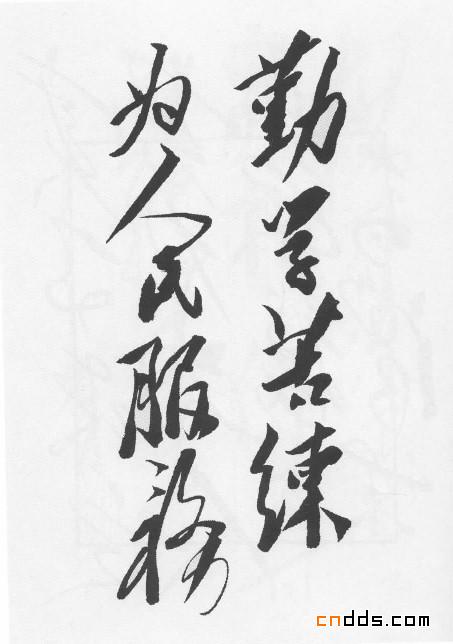 勤学苦练
为人民服务
cndds.com